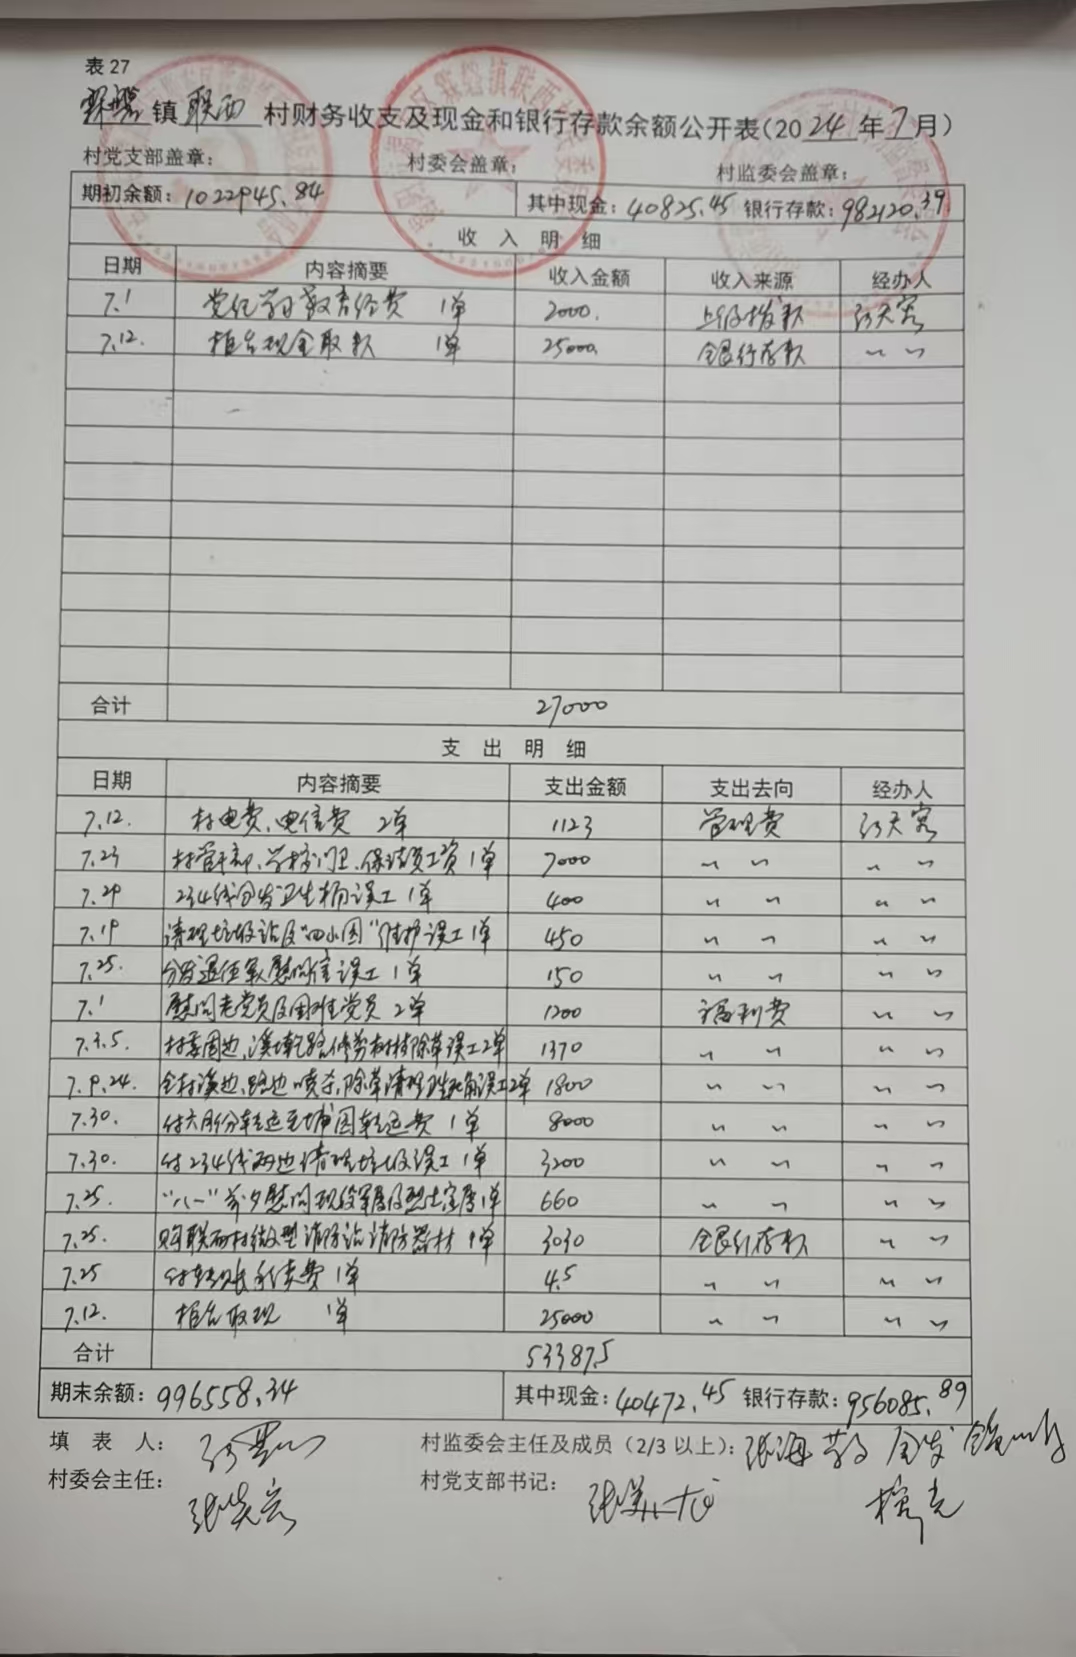 表 27
镇 联西 村财务收支及现金和银行存款余额公开表(2024年7月)
村党支部盖章: 村委会盖章: 村监委会盖章:
期初余额: 1022945.84 其中现金: 40825.45 银行存款: 982120.39
收 入 明 细
日期 内容摘要 收入金额 收入来源 经办人
7.1 党纪学习教育经费 1单 2000. 上级拨款
7.12. 柜台现金取款 1单 25000. 银行存款 〃 〃
合计 27000
支 出 明 细
日期 内容摘要 支出金额 支出去向 经办人
7.12. 村电费、电信费 2单 1123 管理费
7.23 村管干部、学校门卫、保洁员工资 1单 7000 〃 〃 〃 〃
7.29 234线分发卫生桶误工 1单 400 〃 〃 〃 〃
7.19 清理垃圾站及“四小园”维护误工 1单 450 〃 〃 〃 〃
7.25. 分发退伍军人慰问信误工 1单 150 〃 〃 〃 〃
7.1 慰问老党员及困难党员 2单 1200 福利费 〃 〃
7.3.5. 村委周边、溪 路修剪树枝除草误工2单 1370 〃 〃 〃 〃
7.9.24. 全村溪边、路边喷杀、除草清理 误工2单 1800 〃 〃 〃 〃
7.30. 付六月份转运至埔园转运费 1单 8000 〃 〃 〃 〃
7.30. 付234线两边清理垃圾误工 1单 3200 〃 〃 〃 〃
7.25. “八一”前夕慰问现役军属及烈士家属1单 660 〃 〃 〃 〃
7.25. 购联西村微型消防站消防器材 1单 3030 银行存款 〃 〃
7.25 付转账手续费 1单 4.5 〃 〃 〃 〃
7.12. 柜台取现 1单 25000 〃 〃 〃 〃
合计 53387.5
期末余额: 996558.34 其中现金: 40472.45 银行存款: 956085.89
填 表 人: 村监委会主任及成员(2/3 以上): 张海
村委会主任: 村党支部书记: